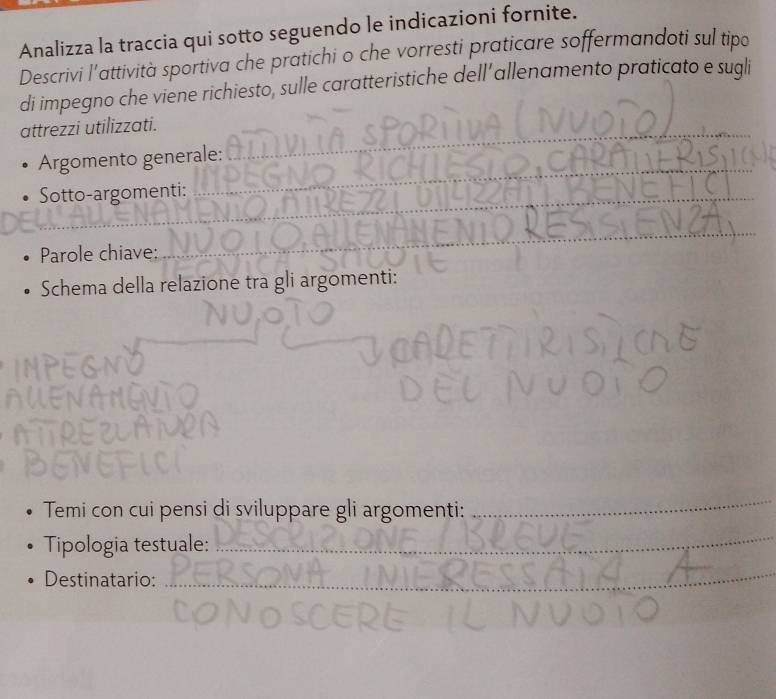 Analizza la traccia qui sotto seguendo le indicazioni fornite.
Descrivi l'attività sportiva che pratichi o che vorresti praticare soffermandoti sul tipo
di impegno che viene richiesto, sulle caratteristiche dell'allenamento praticato e sugli
attrezzi utilizzati.
• Argomento generale: ATTIVITÀ SPORTIVA (NUOTO)
• Sotto-argomenti: IMPEGNO RICHIESTO, CARATTERISTICHE
DELL'ALLENAMENTO, ATTREZZI UTILIZZATI, BENEFICI
• Parole chiave: NUOTO, ALLENAMENTO RESISTENZA,
TECNICA SALUTE
• Schema della relazione tra gli argomenti:
NUOTO
IMPEGNO
CARETTIRISICHE
DEL NUOTO
ALLENAMENTO
BENEFICI
• Temi con cui pensi di sviluppare gli argomenti:
• Tipologia testuale: DESCRIZIONE / BREVE
• Destinatario: PERSONA INTERESSATA A
CONOSCERE IL NUOTO